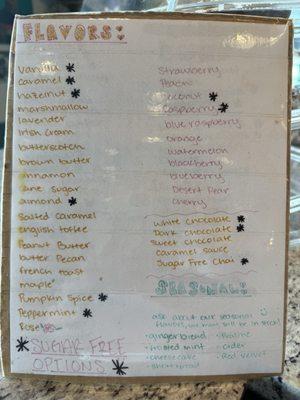 FLAVORS:
Vanilla *
caramel *
hazelnut *
marshmallow
lavender
Irish cream
butterscotch
brown butter
cinnamon
cane sugar
almond *
salted caramel
english toffee
Peanut Butter
butter Pecan
french toast
maple
Pumpkin Spice *
Peppermint *
Rose
* SUGAR FREE
OPTIONS *
Strawberry
Peach
coconut *
raspberry *
blue raspberry
orange
watermelon
blackberry
blueberry
Desert Pear
cherry
white chocolate *
Dark chocolate *
sweet chocolate
caramel sauce
Sugar Free Chai *
SEASONAL:
ask about our seasonal
flavors, we may still be in stock!
•gingerbread
•frosted mint
•cheesecake
•shortbread
•Praline
•cider
•Red velvet